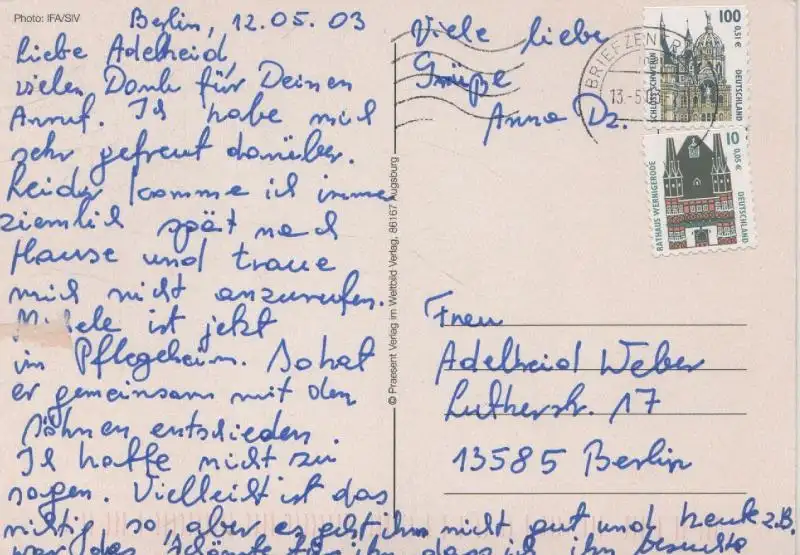 Photo: IFA/SIV
Berlin, 12.05.03
Liebe Adelheid,
vielen Dank für Deinen
Anruf. Ich habe mich
sehr gefreut darüber.
Leider komme ich immer
ziemlich spät nach
Hause und traue
mich nicht anzurufen.
ist jetzt
im Pflegeheim. So hat
er gemeinsam mit den
Söhnen entschieden.
Ich hatte nicht zu
sagen. Vielleicht ist das
richtig so aber es geht ihm nicht gut und heute z.B.
war das Schönste für ihn dass ich ihn besuchte
Viele liebe
Grüße
Anna Dz.
© Praesent Verlag im Weltbild Verlag, 86167 Augsburg
BRIEFZENTR
13.-5.03
100
0,51€
SCHLOSS SCHWERIN
DEUTSCHLAND
10
0,05€
RATHAUS WERNIGERODE
DEUTSCHLAND
Frau
Adelheid Weber
Lutherstr. 17
13585 Berlin